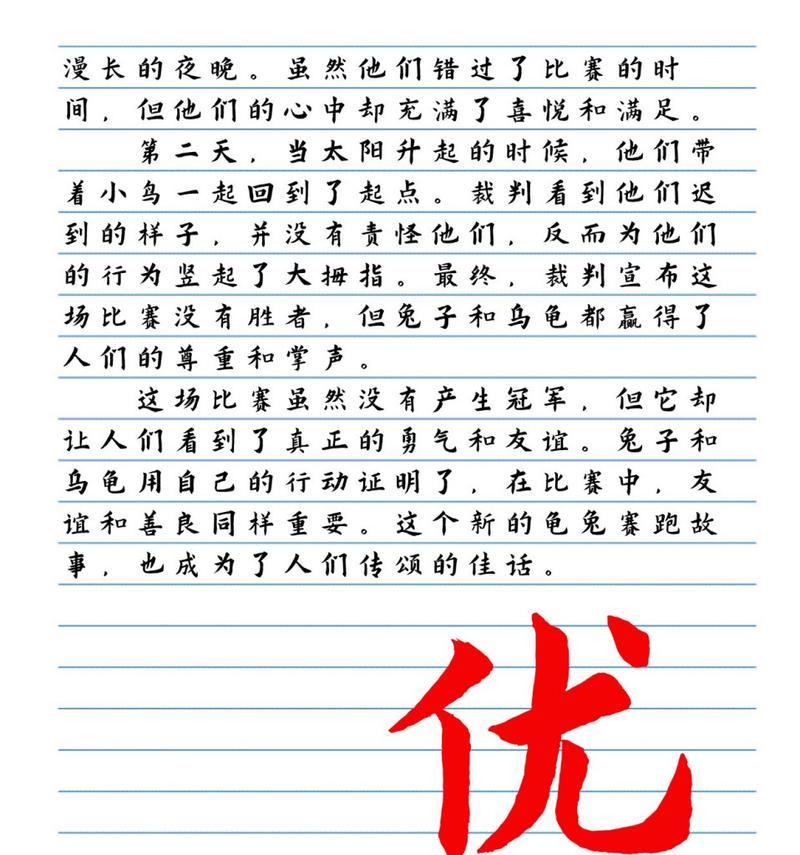 漫长的夜晚。虽然他们错过了比赛的时
间，但他们的心中却充满了喜悦和满足。
第二天，当太阳升起的时候，他们带
着小鸟一起回到了起点。裁判看到他们迟
到的样子，并没有责怪他们，反而为他们
的行为竖起了大拇指。最终，裁判宣布这
场比赛没有胜者，但兔子和乌龟都赢得了
人们的尊重和掌声。
这场比赛虽然没有产生冠军，但它却
让人们看到了真正的勇气和友谊。兔子和
乌龟用自己的行动证明了，在比赛中，友
谊和善良同样重要。这个新的龟兔赛跑故
事，也成为了人们传颂的佳话。
优